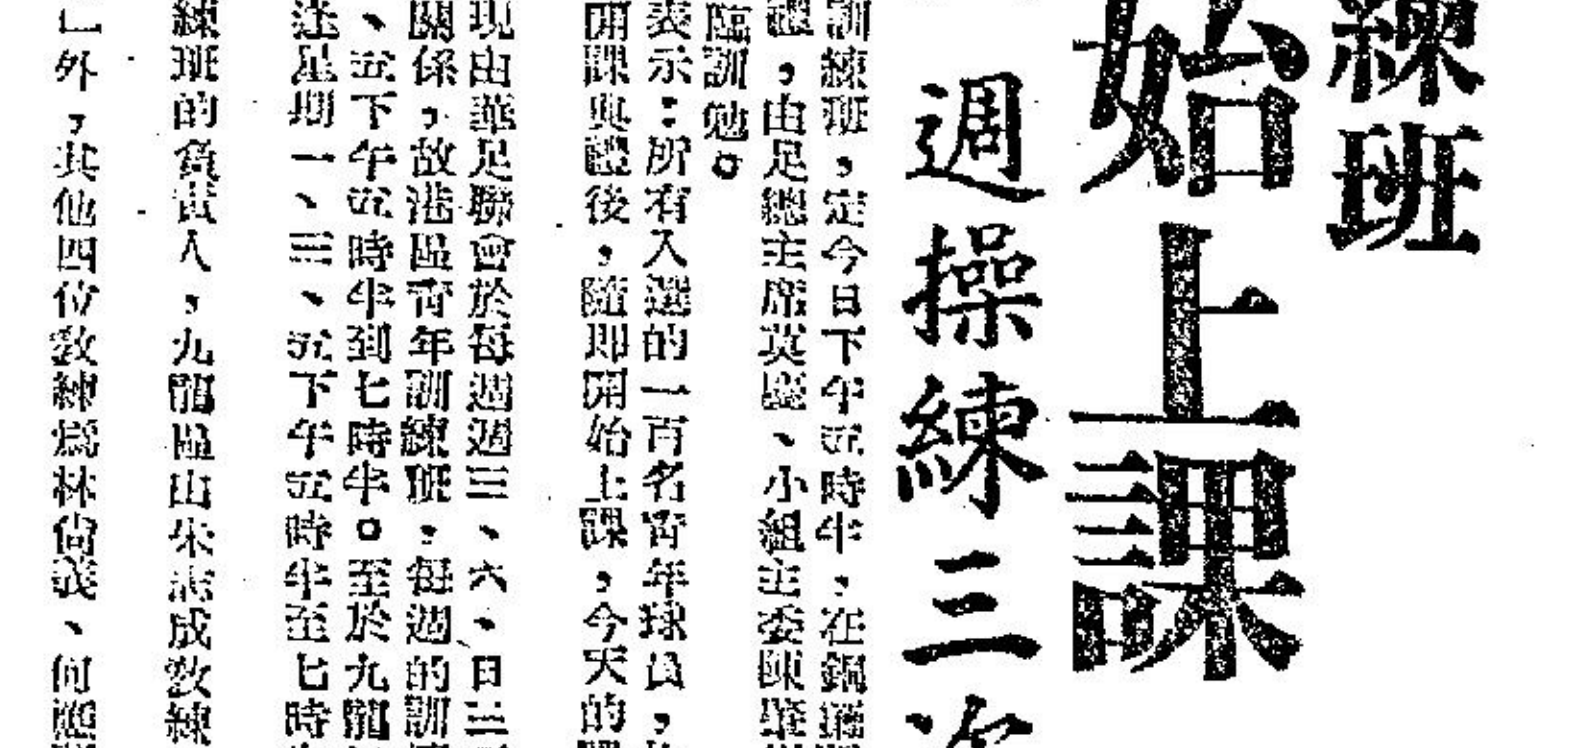 練班
始上課
週操練三次
訓練班，定今日下午五時半，在銅鑼
總，由足總主席莫慶、小組主委陳肇
臨訓勉。
表示：所有入選的一百名靑年球員，
開課典禮後，隨即開始上課，今天的課
現由華足聯會於每週週三、六、日三
關係，故港區靑年訓練班，每週的訓
、五下午五時半到七時半。至於九龍
逢星期一、三、五下午五時半至七時
練班的負責人，九龍區由朱志成敎練
」外，其他四位敎練爲林尙義、何應